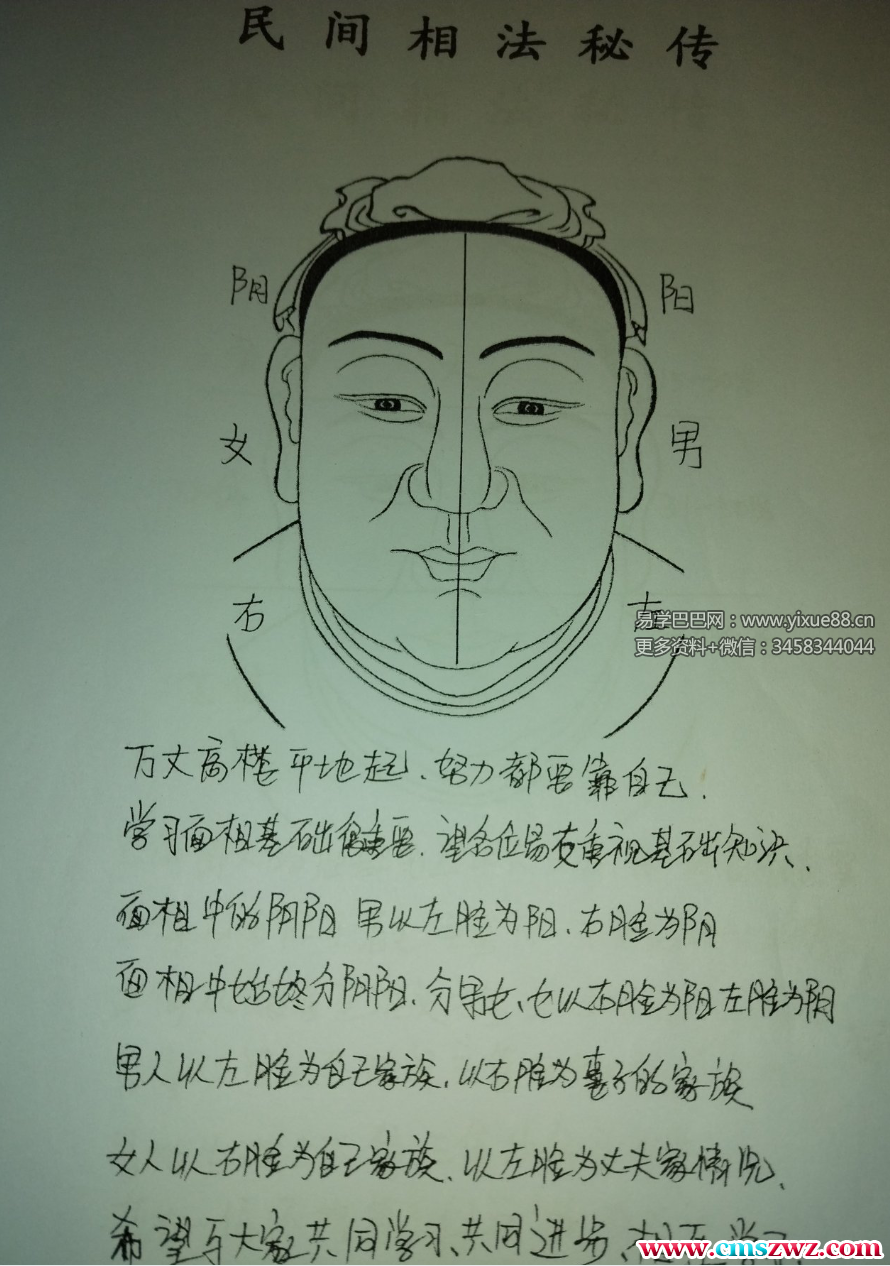 民间相法秘传
阴 阳
女 男
右 左
易学巴巴网：www.yixue88.cn
更多资料+微信：3458344044
万丈高楼平地起、努力都要靠自己.
学习面相基础很重要.望各位易友重视基础知识、
面相中的阴阳 男以左脸为阳、右脸为阴
面相中始终分阴阳、分男女、女以右脸为阳左脸为阴
男人以左脸为自己家族、以右脸为妻子的家族
女人以右脸为自己家族、以左脸为丈夫家情况、
希望与大家共同学习、共同进步、相互学习、
www.cmszwz.com